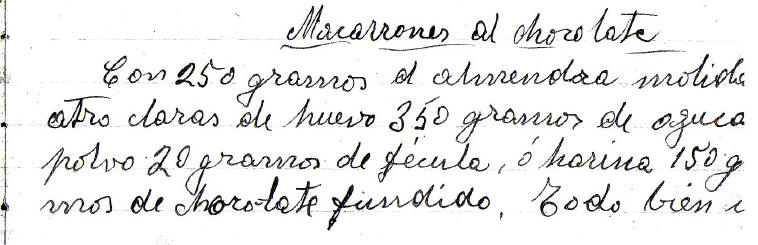 Macarrones al chocolate
Con 250 gramos d almendra molida
atro claras de huevo 350 gramos de azuca
polvo 20 gramos de fécula, ó harina 150 g
mos de chocolate fundido. Todo bien